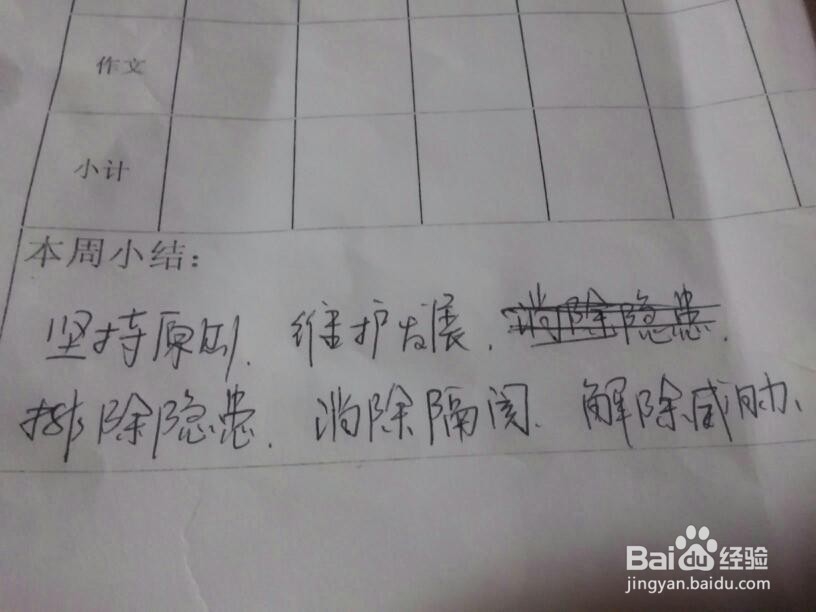 作文
小计
本周小结：
坚持原则、维护发展、消除隐患、
排除隐患、消除隔阂、解除威胁、
Baidu经验
jingyan.baidu.com